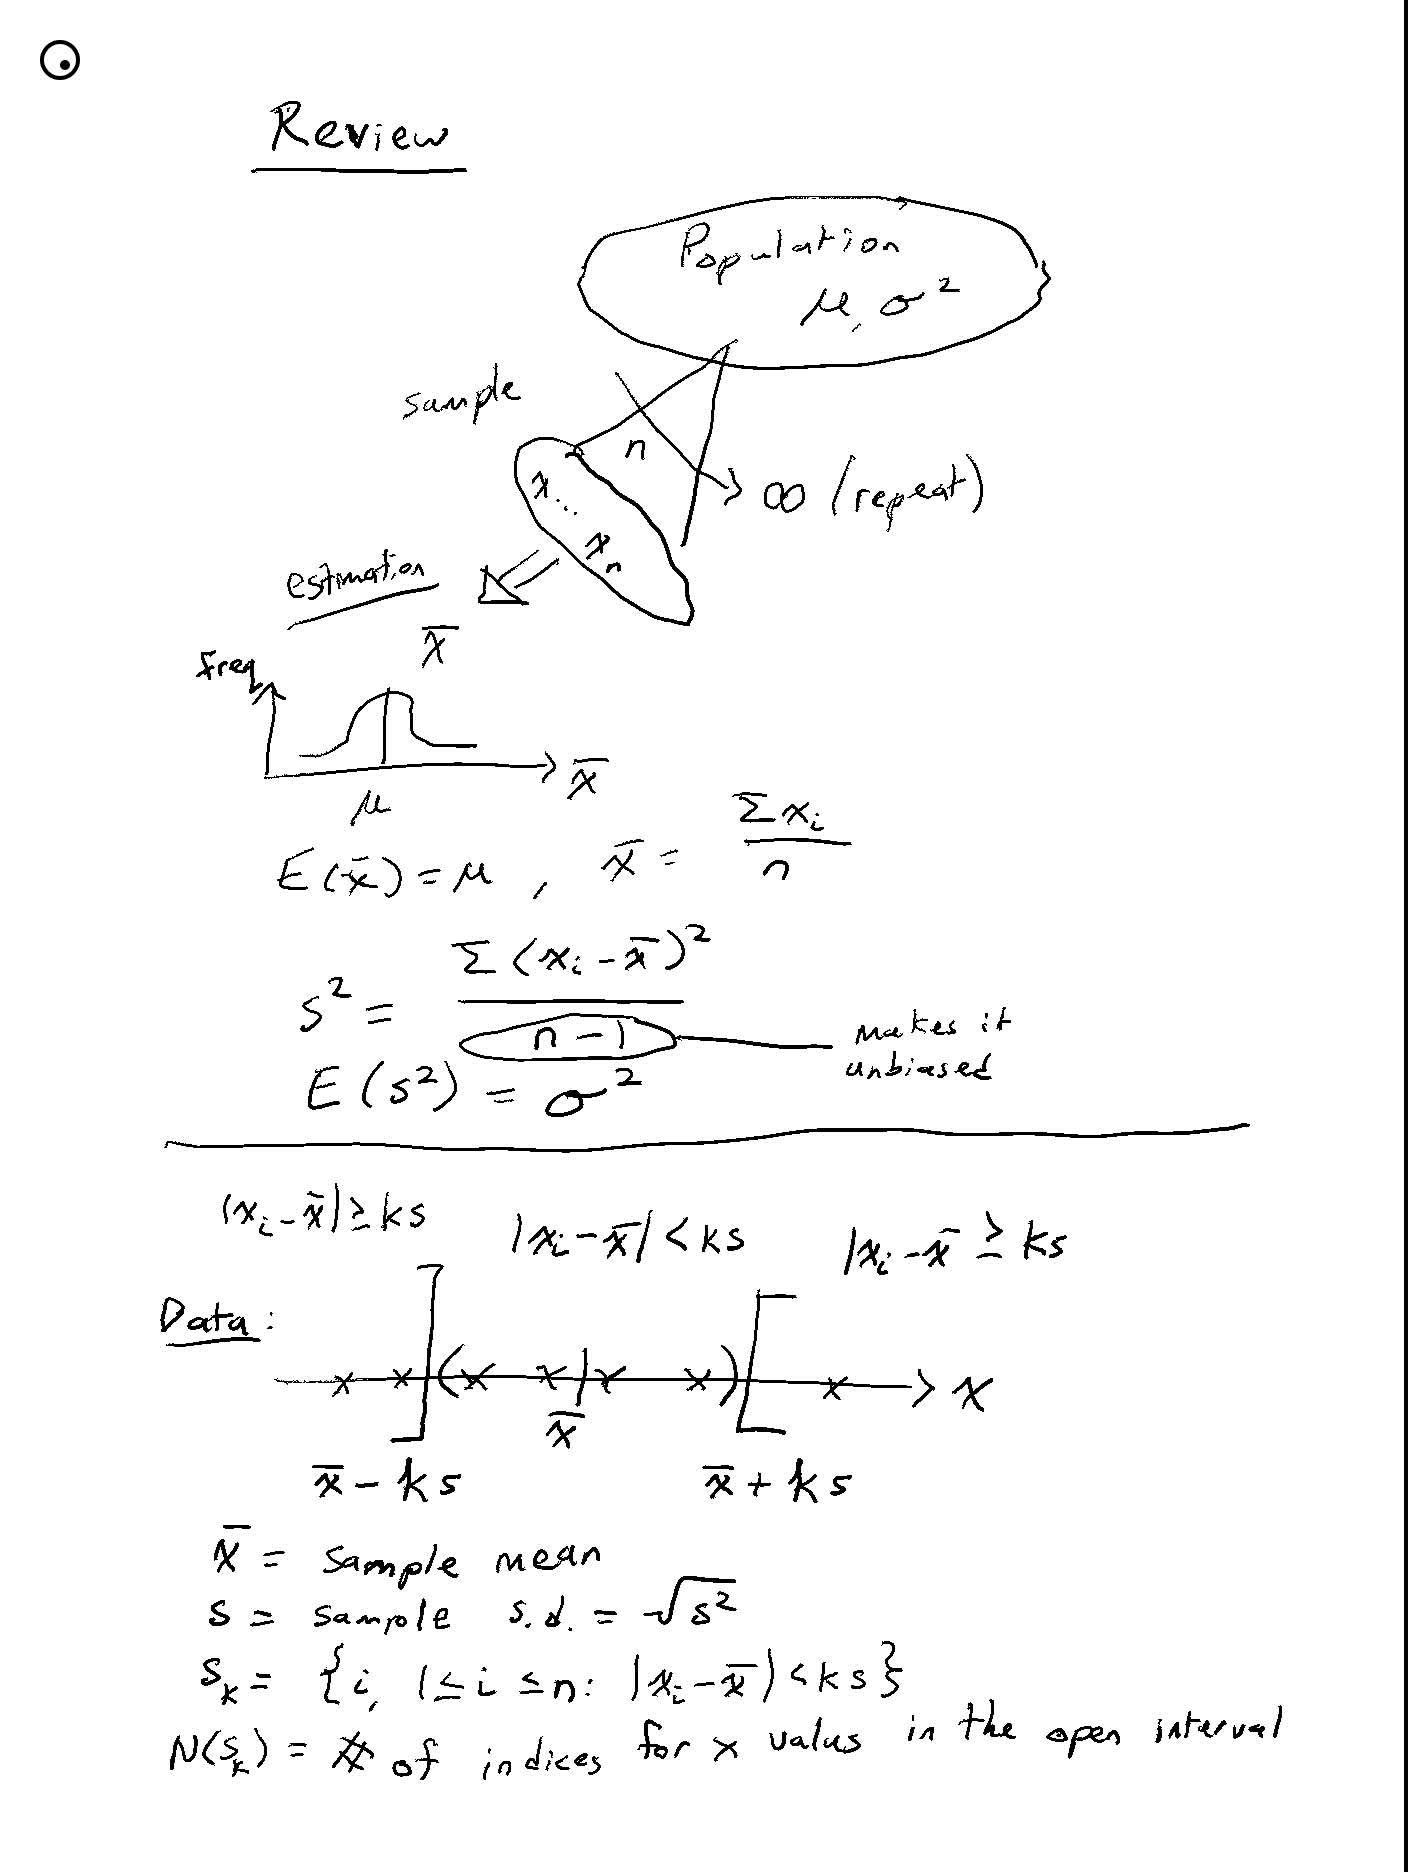 Review
Population
μ, σ²
sample
n
x...
xₙ
∞ (repeat)
estimation
x̄
freq
x̄
μ
E(x̄) = μ , x̄ = Σxᵢ / n
s² = Σ(xᵢ - x̄)² / (n - 1)
makes it
unbiased
E(s²) = σ²
|xᵢ - x̄| ≥ ks
|xᵢ - x̄| < ks
|xᵢ - x̄ ≥ ks
Data:
x x ] ( x x | x x ) [ x → x
x̄
x̄ - ks
x̄ + ks
x̄ = sample mean
s = sample s.d. = √s²
Sₖ = {i, 1 ≤ i ≤ n: |xᵢ - x̄| < ks}
N(Sₖ) = # of indices for x valus in the open interval